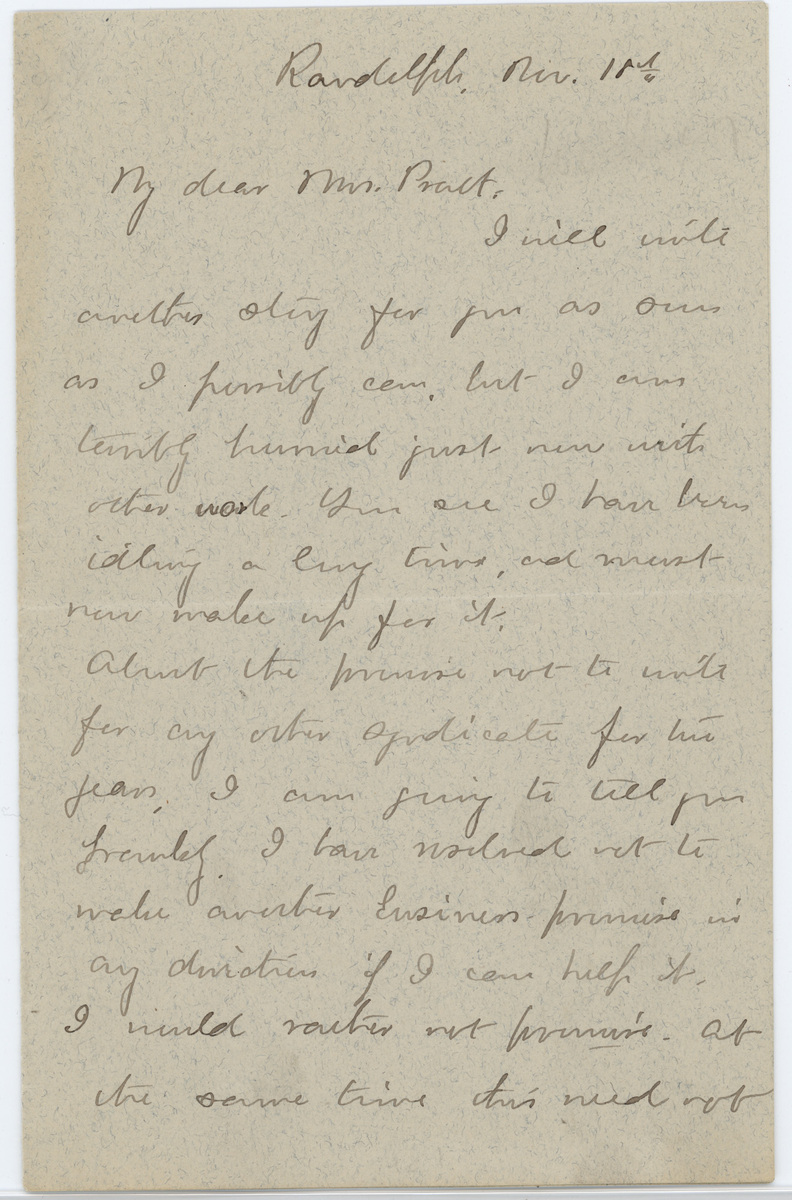 Randolph, Nov. 18th
My dear Mrs. Pratt.
I will write
another story for you as soon
as I possibly can, but I am
terribly hurried just now with
other work. You see I have been
idling a long time, and must
now make up for it.
About the promise not to write
for any other syndicate for two
years, I am going to tell you
frankly. I have resolved not to
make another business promise in
any direction if I can help it.
I would rather not promise. At
the same time this need not